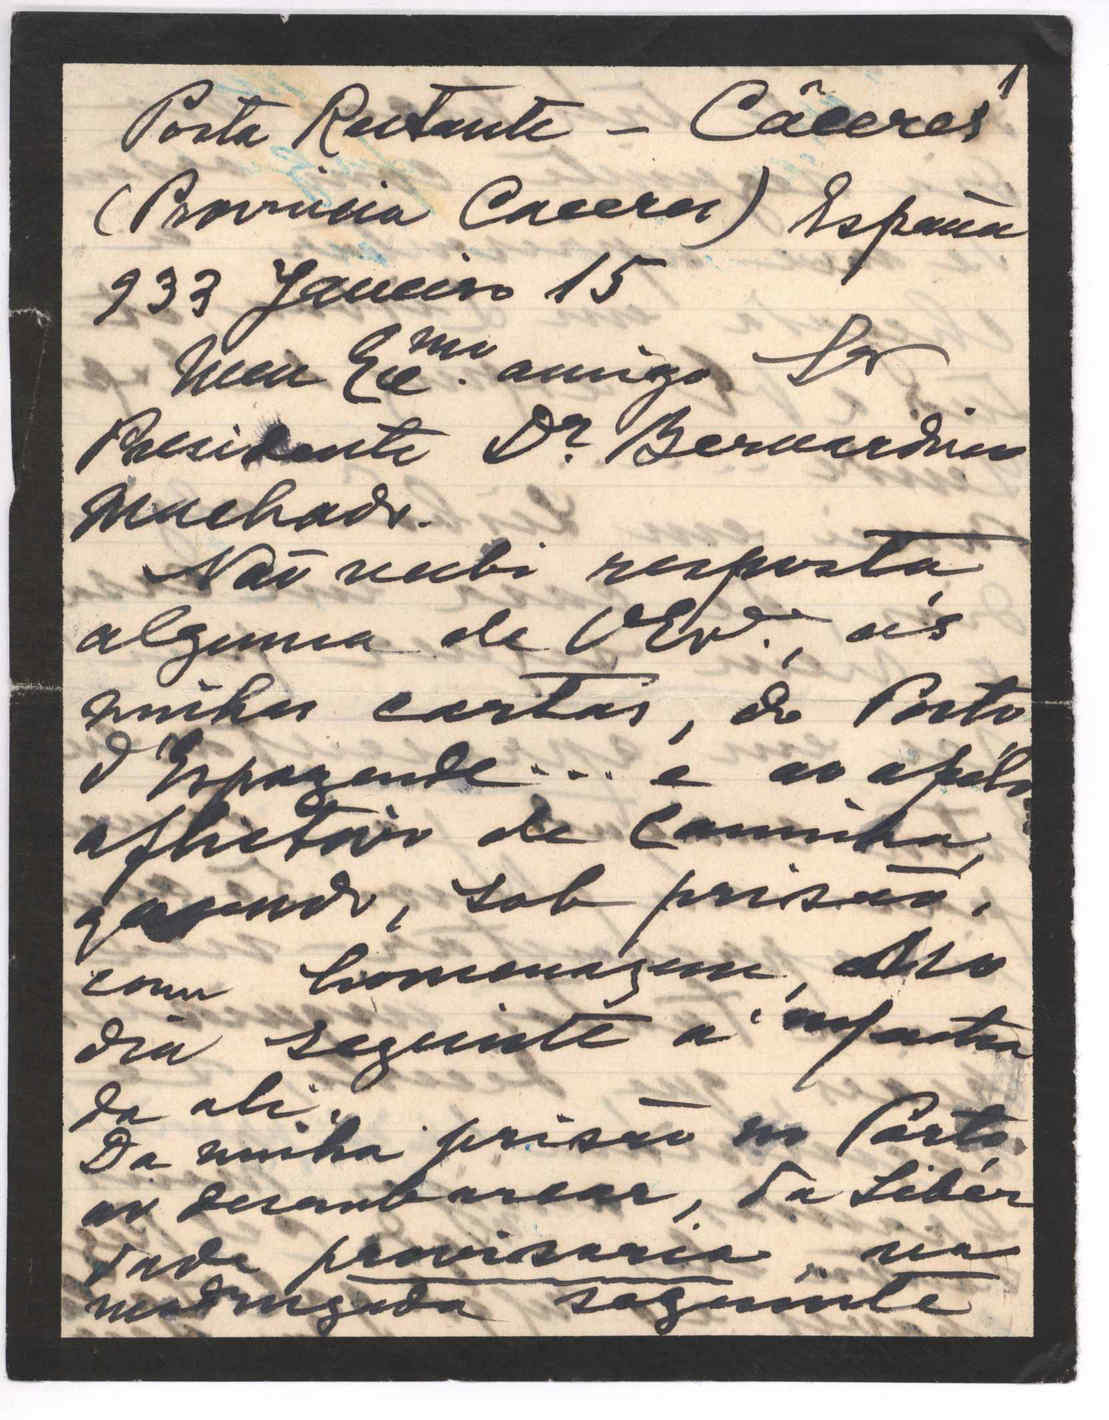 1
Posta Restante – Câceres
(Provincia Caceres) España
933 Janeiro 15
Meu Exc.mo amigo Sr
Presidente Dr. Bernardino
Machado.
Não recebi resposta
alguma de VExa., ás
minhas cartas, do Porto
d'Espozende... e ao apêlo
aflictivo de Caminha,
quando, sob prisão,
com homenagem,
dia seguinte a
da ali.
Da minha prisão no Porto,
ao desembarcar, da Liber
dade provisoria na
madrugada seguinte